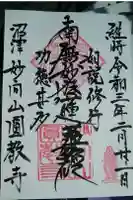 維時令和三年二月廿一日
如説修行
南無妙法蓮華経
功徳甚多
沼津 妙向山圓教寺